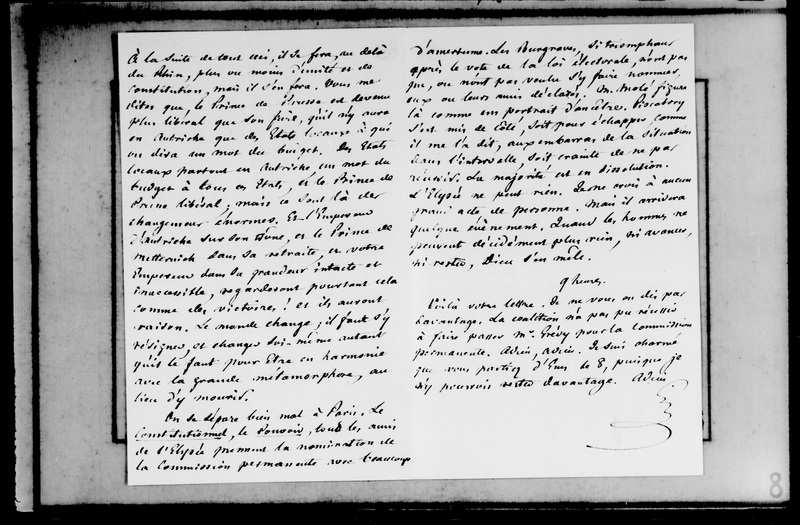 À la suite de tout ceci, il se fera, au delà
du Rhin, plus ou moins d'unité et de
constitution, mais il s'en fera. Vous me
dites que, le Prince de Prusse est devenu
plus libéral que son frère, qu'il n'y aura
en Autriche que des Etats locaux à qui
on dira un mot du budget. Des Etats
locaux partout en Autriche, un mot du
budget à tous ces Etats, et le Prince de
Prusse libéral; mais ce sont là des
changemens énormes. Et l'Empereur
d'Autriche sur son trône, et le Prince de
Metternich dans sa retraite, et votre
Empereur dans sa grandeur intacte et
inaccessible, regarderont pourtant cela
comme des victoires! et ils auront
raison. Le monde change; il faut s'y
résigner, et changer soi-même autant
qu'il le faut pour être en harmonie
avec la grande métamorphose, au
lieu d'y mourir.
On se sépare bien mal à Paris. Le
Constitutionnel, le Pouvoir, tous les amis
de l'Elysée prennent la nomination de
la Commission permanente avec beaucoup
d'amertume. Les Burgraves, si triomphans
après le vote de la loi électorale, n'ont pas
pu, ou n'ont pas voulu s'y faire nommer,
eux ou leurs amis déclarés. M. Molé figure
là comme un portrait d'ancêtre. Piscatory
s'est mis de côté, soit pour échapper, comme
il me l'a dit, aux embarras de la situation
dans l'intervalle, soit crainte de ne pas
réussir. La majorité est en dissolution.
L'Elysée ne peut rien. Je ne crois à aucun
grand acte de personne. Mais il arrivera
quelque évènement. Quand les hommes ne
peuvent décidément plus rien, ni avancer,
ni rester, Dieu s'en mêle.
9 heures.
Voilà votre lettre. Je ne vous en dis pas
davantage. La coalition n'a pas pu réussir
à faire passer Mr Grévy pour la commission
permanente. Adieu, adieu. Je suis charmé
que vous partiez d'Ems le 8, puisque je
n'y pouvois rester davantage. Adieu
8